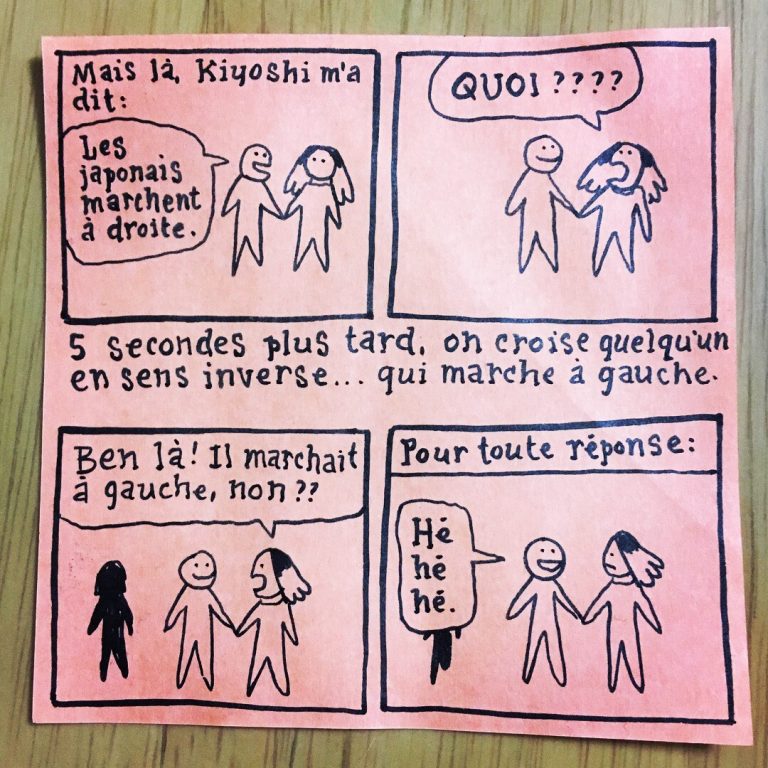 Mais là, Kiyoshi m'a
dit:
Les
japonais
marchent
à droite.
QUOI ????
5 secondes plus tard, on croise quelqu'un
en sens inverse... qui marche à gauche.
Ben là! Il marchait
à gauche, non ??
Pour toute réponse:
Hé
hé
hé.